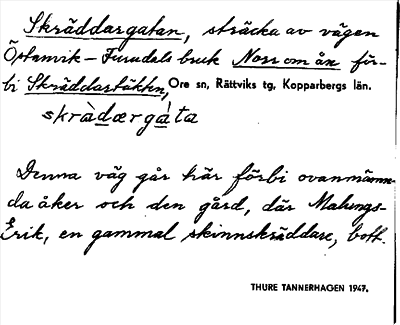 Skräddargatan, sträcka av vägen
Östanvik – Furudals bruk Norr om ån för-
bi Skräddartäkten, Ore sn, Rättviks tg, Kopparbergs län.
skrà̀dærgá̀ta
Denna väg går här förbi ovannämn-
da åker och den gård, där Malungs-
Erik, en gammal skinnskräddare, bott.
THURE TANNERHAGEN 1947.